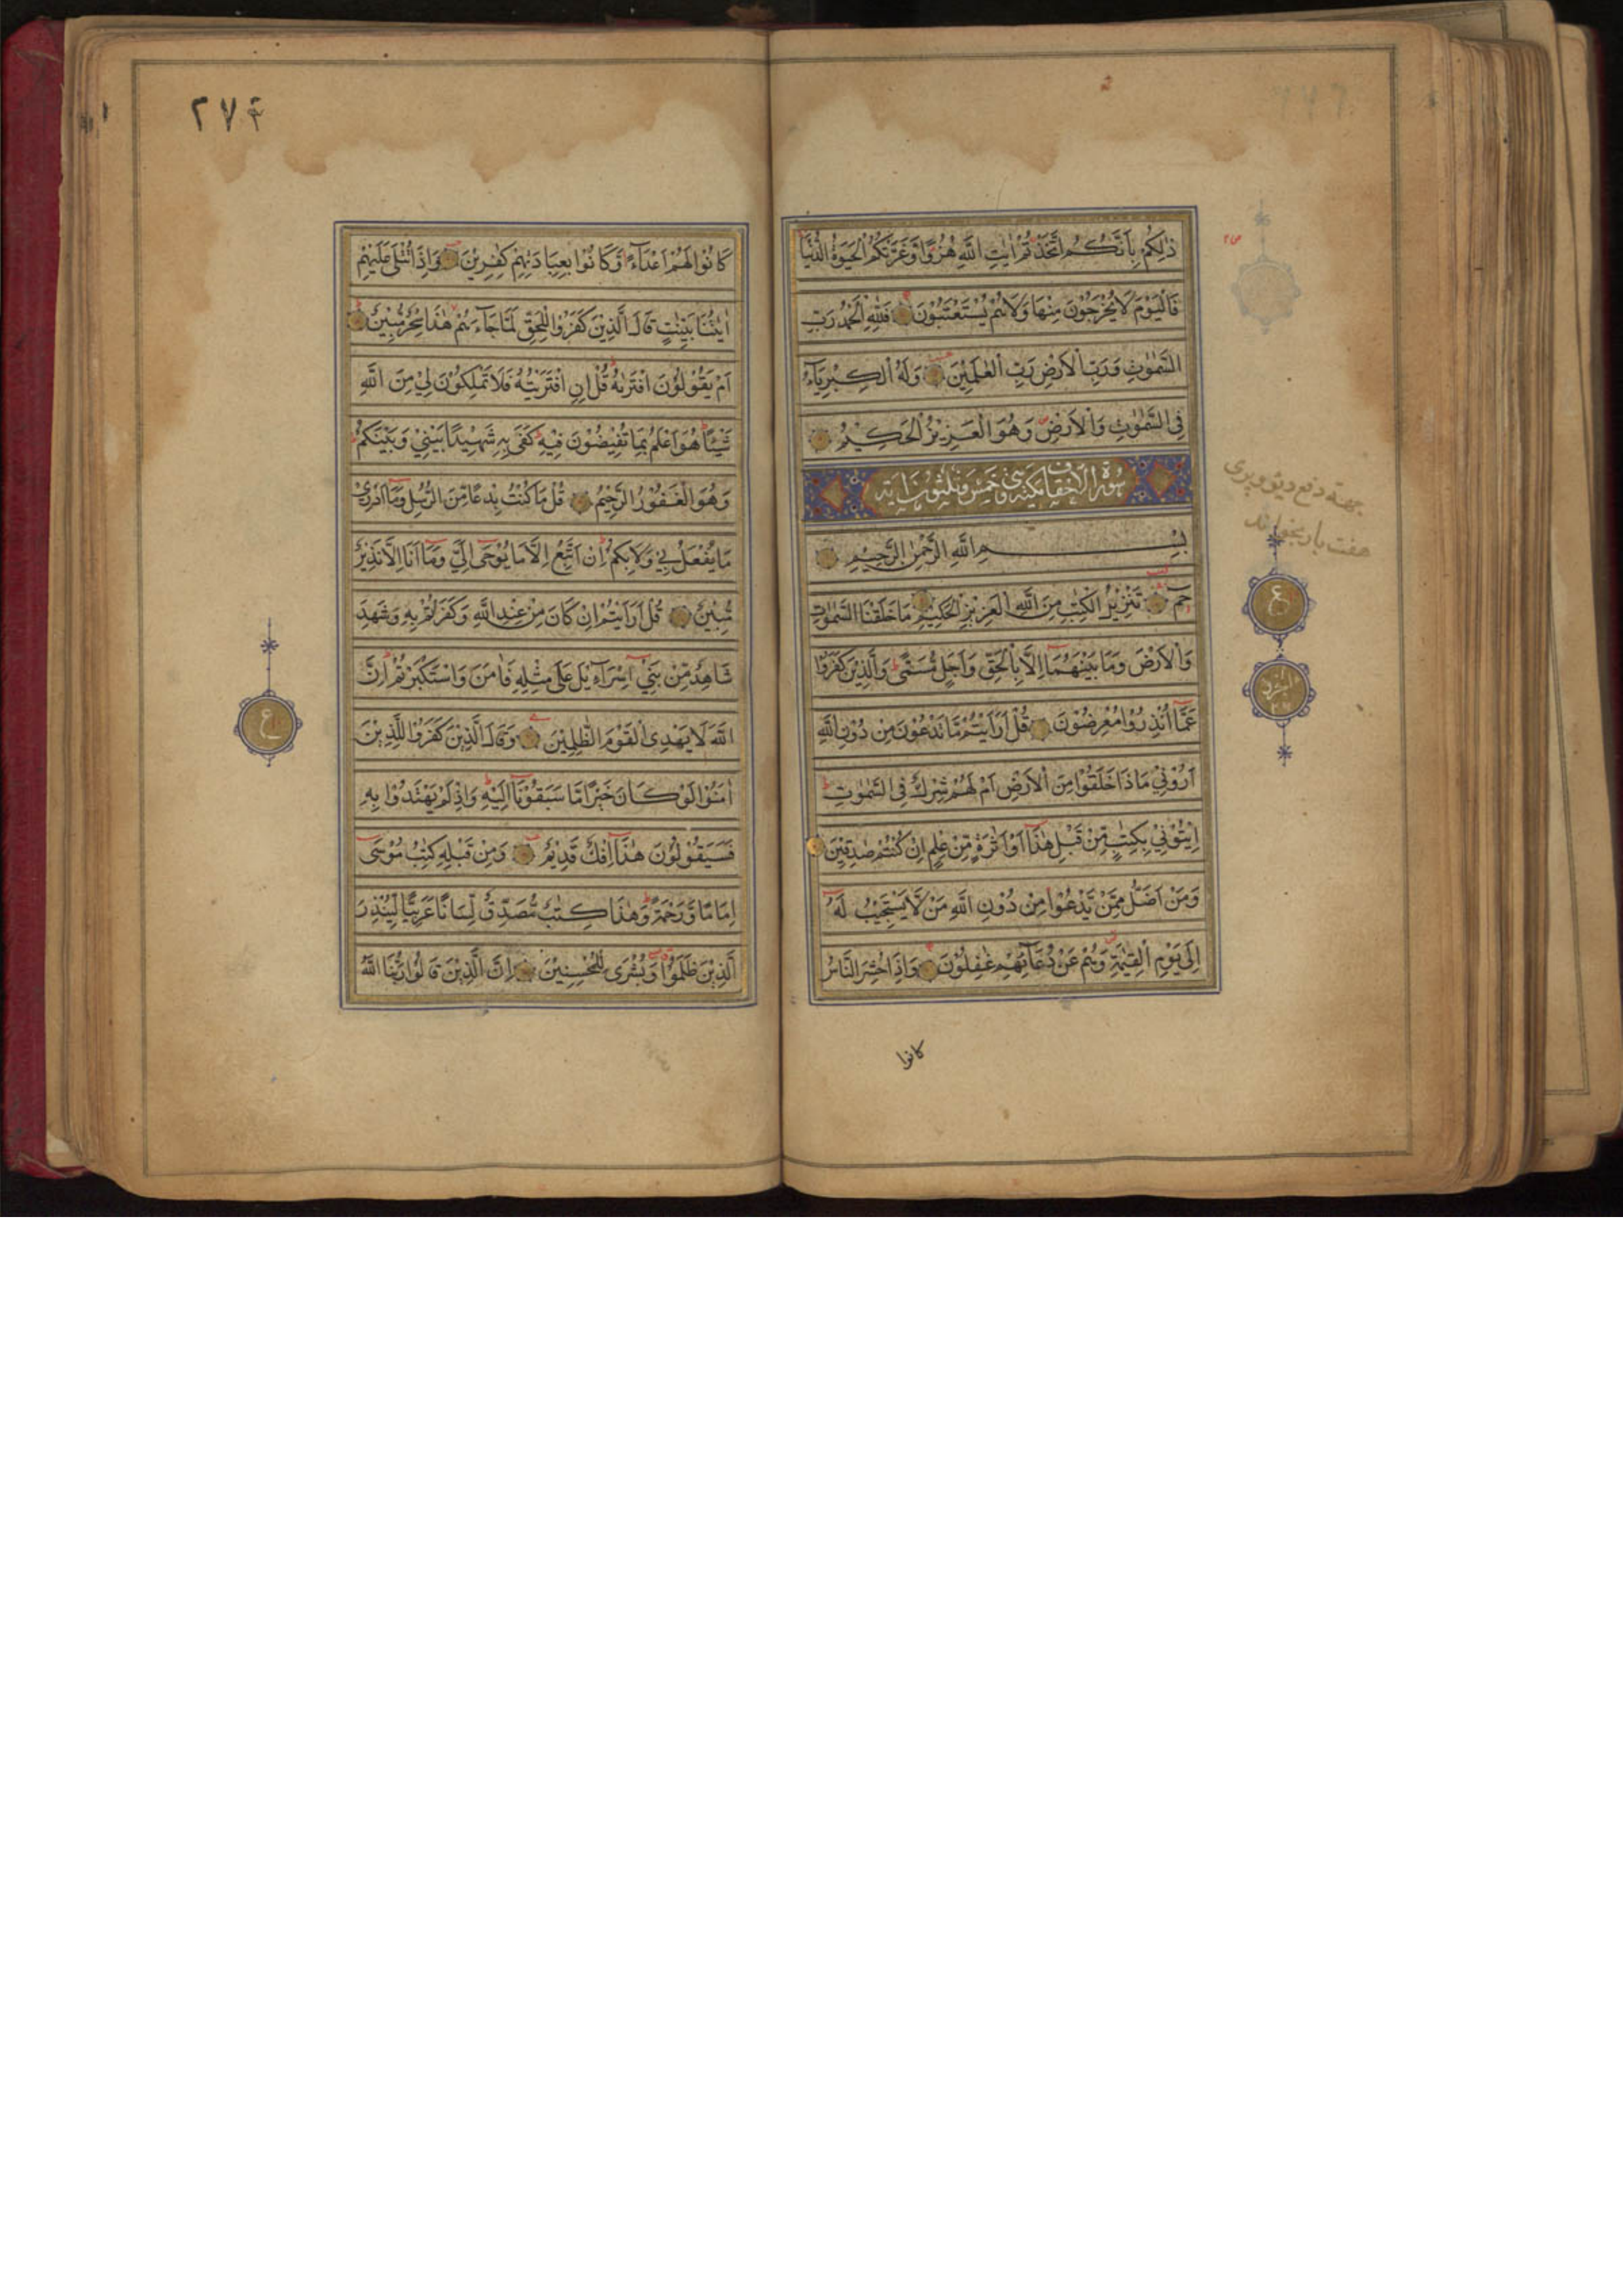 ذٰلِكُمْ بِاَنَّكُمُ اتَّخَذْتُمْ اٰيٰتِ اللّٰهِ هُزُوًا وَّغَرَّتْكُمُ الْحَيٰوةُ الدُّنْيَا
فَالْيَوْمَ لَا يُخْرَجُوْنَ مِنْهَا وَلَا هُمْ يُسْتَعْتَبُوْنَ فَلِلّٰهِ الْحَمْدُ رَبِّ
السَّمٰوٰتِ وَرَبِّ الْاَرْضِ رَبِّ الْعٰلَمِيْنَ وَلَهُ الْكِبْرِيَآءُ
فِى السَّمٰوٰتِ وَالْاَرْضِ وَهُوَ الْعَزِيْزُ الْحَكِيْمُ
سورة الاحقاف مكية وهى خمس وثلثون اية
بِسْمِ اللّٰهِ الرَّحْمٰنِ الرَّحِيْمِ
حٰمٓ تَنْزِيْلُ الْكِتٰبِ مِنَ اللّٰهِ الْعَزِيْزِ الْحَكِيْمِ مَا خَلَقْنَا السَّمٰوٰتِ
وَالْاَرْضَ وَمَا بَيْنَهُمَا اِلَّا بِالْحَقِّ وَاَجَلٍ مُّسَمًّى وَالَّذِيْنَ كَفَرُوْا
عَمَّا اُنْذِرُوْا مُعْرِضُوْنَ قُلْ اَرَاَيْتُمْ مَّا تَدْعُوْنَ مِنْ دُوْنِ اللّٰهِ
اَرُوْنِيْ مَاذَا خَلَقُوْا مِنَ الْاَرْضِ اَمْ لَهُمْ شِرْكٌ فِى السَّمٰوٰتِ
اِيْتُوْنِيْ بِكِتٰبٍ مِّنْ قَبْلِ هٰذَا اَوْ اَثٰرَةٍ مِّنْ عِلْمٍ اِنْ كُنْتُمْ صٰدِقِيْنَ
وَمَنْ اَضَلُّ مِمَّنْ يَّدْعُوْا مِنْ دُوْنِ اللّٰهِ مَنْ لَّا يَسْتَجِيْبُ لَهٗ
اِلٰى يَوْمِ الْقِيٰمَةِ وَهُمْ عَنْ دُعَآئِهِمْ غٰفِلُوْنَ وَاِذَا حُشِرَ النَّاسُ
كانوا
جهة دفع ديو و پرى
هفت بار بخواند
ع
٢٧٤
كَانُوْا لَهُمْ اَعْدَآءً وَّكَانُوْا بِعِبَادَتِهِمْ كٰفِرِيْنَ وَاِذَا تُتْلٰى عَلَيْهِمْ
اٰيٰتُنَا بَيِّنٰتٍ قَالَ الَّذِيْنَ كَفَرُوْا لِلْحَقِّ لَمَّا جَآءَهُمْ هٰذَا سِحْرٌ مُّبِيْنٌ
اَمْ يَقُوْلُوْنَ افْتَرٰىهُ قُلْ اِنِ افْتَرَيْتُهٗ فَلَا تَمْلِكُوْنَ لِيْ مِنَ اللّٰهِ
شَيْئًا هُوَ اَعْلَمُ بِمَا تُفِيْضُوْنَ فِيْهِ كَفٰى بِهٖ شَهِيْدًا بَيْنِيْ وَبَيْنَكُمْ
وَهُوَ الْغَفُوْرُ الرَّحِيْمُ قُلْ مَا كُنْتُ بِدْعًا مِّنَ الرُّسُلِ وَمَا اَدْرِيْ
مَا يُفْعَلُ بِيْ وَلَا بِكُمْ اِنْ اَتَّبِعُ اِلَّا مَا يُوْحٰى اِلَيَّ وَمَا اَنَا اِلَّا نَذِيْرٌ
مُّبِيْنٌ قُلْ اَرَاَيْتُمْ اِنْ كَانَ مِنْ عِنْدِ اللّٰهِ وَكَفَرْتُمْ بِهٖ وَشَهِدَ
شَاهِدٌ مِّنْ بَنِيْ اِسْرَآءِيْلَ عَلٰى مِثْلِهٖ فَاٰمَنَ وَاسْتَكْبَرْتُمْ اِنَّ
اللّٰهَ لَا يَهْدِى الْقَوْمَ الظّٰلِمِيْنَ وَقَالَ الَّذِيْنَ كَفَرُوْا لِلَّذِيْنَ
اٰمَنُوْا لَوْ كَانَ خَيْرًا مَّا سَبَقُوْنَا اِلَيْهِ وَاِذْ لَمْ يَهْتَدُوْا بِهٖ
فَسَيَقُوْلُوْنَ هٰذَا اِفْكٌ قَدِيْمٌ وَمِنْ قَبْلِهٖ كِتٰبُ مُوْسٰى
اِمَامًا وَّرَحْمَةً وَهٰذَا كِتٰبٌ مُّصَدِّقٌ لِّسَانًا عَرَبِيًّا لِّيُنْذِرَ
الَّذِيْنَ ظَلَمُوْا وَبُشْرٰى لِلْمُحْسِنِيْنَ اِنَّ الَّذِيْنَ قَالُوْا رَبُّنَا اللّٰهُ
ع